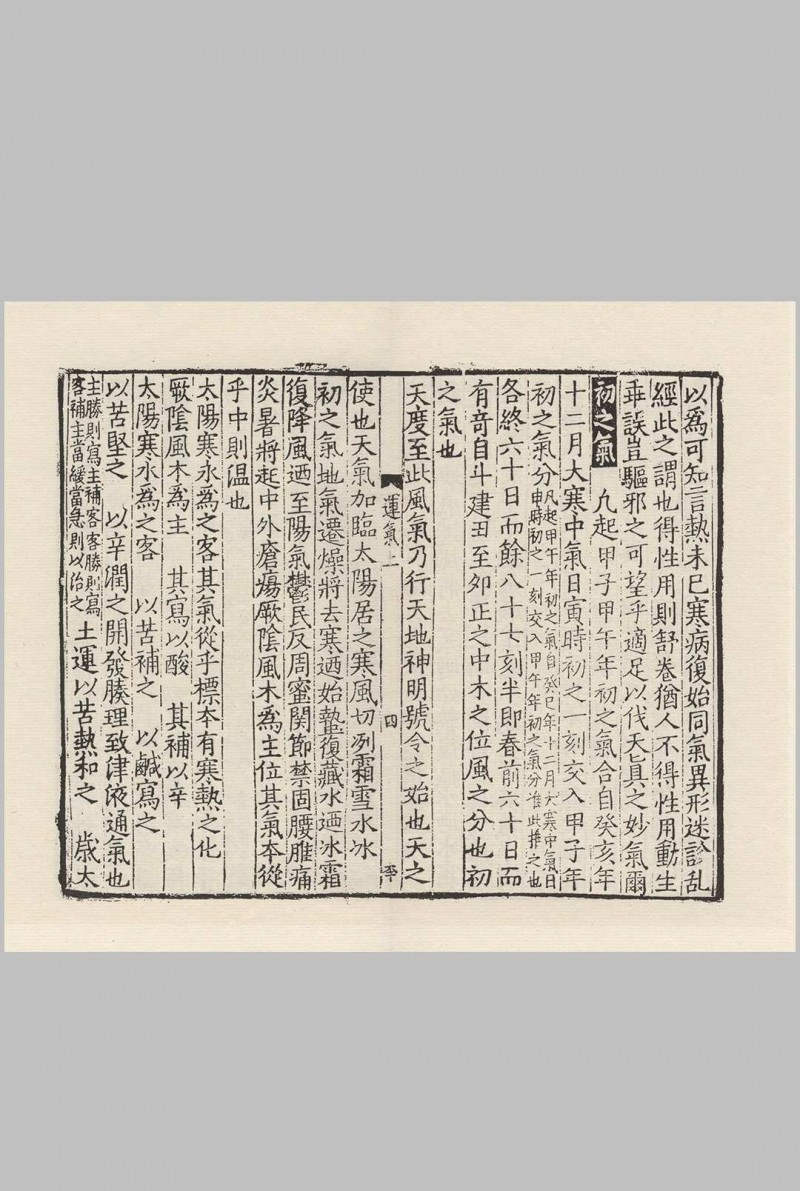 以爲可知言熱未已寒病復始同氣異形迷診乱
經此之謂也得性用則舒卷猶人不得性用動生
乖誤豈驅邪之可望乎適足以伐天眞之妙氣爾
初之氣 凡起甲子甲午年初之氣合自癸亥年
十二月大寒中氣日寅時初之一刻交入甲子年
初之氣分凡起甲午年初之氣自癸巳年十二月大寒中氣日
申時初之一刻交入甲午年初之氣分准此推之也
各終六十日而餘八十七刻半即春前六十日而
有竒自斗建丑至夘正之中木之位風之分也初
之氣也
天度至此風氣乃行天地神明號令之始也天之
運氣上 四
使也天氣加臨太陽居之寒風切冽霜雪水冰
初之氣地氣遷燥將去寒迺始蟄復藏水迺冰霜
復降風迺至陽氣鬱民反周蜜関節禁固腰脽痛
炎暑將起中外瘡瘍厥陰風木爲主位其氣本從
乎中則温也
太陽寒水爲之客其氣從乎標本有寒熱之化
厥陰風木爲主 其寫以酸 其補以辛
太陽寒水爲之客 以苦補之 以鹹寫之
以苦堅之 以辛潤之開發腠理致津液通氣也
主勝則寫主補客客勝則寫
客補主當緩當急則以治之 土運以苦熱和之 歳太